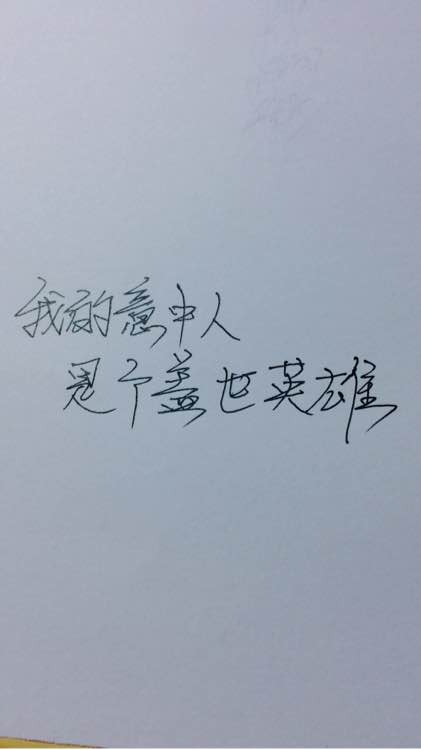 我的意中人
是个盖世英雄